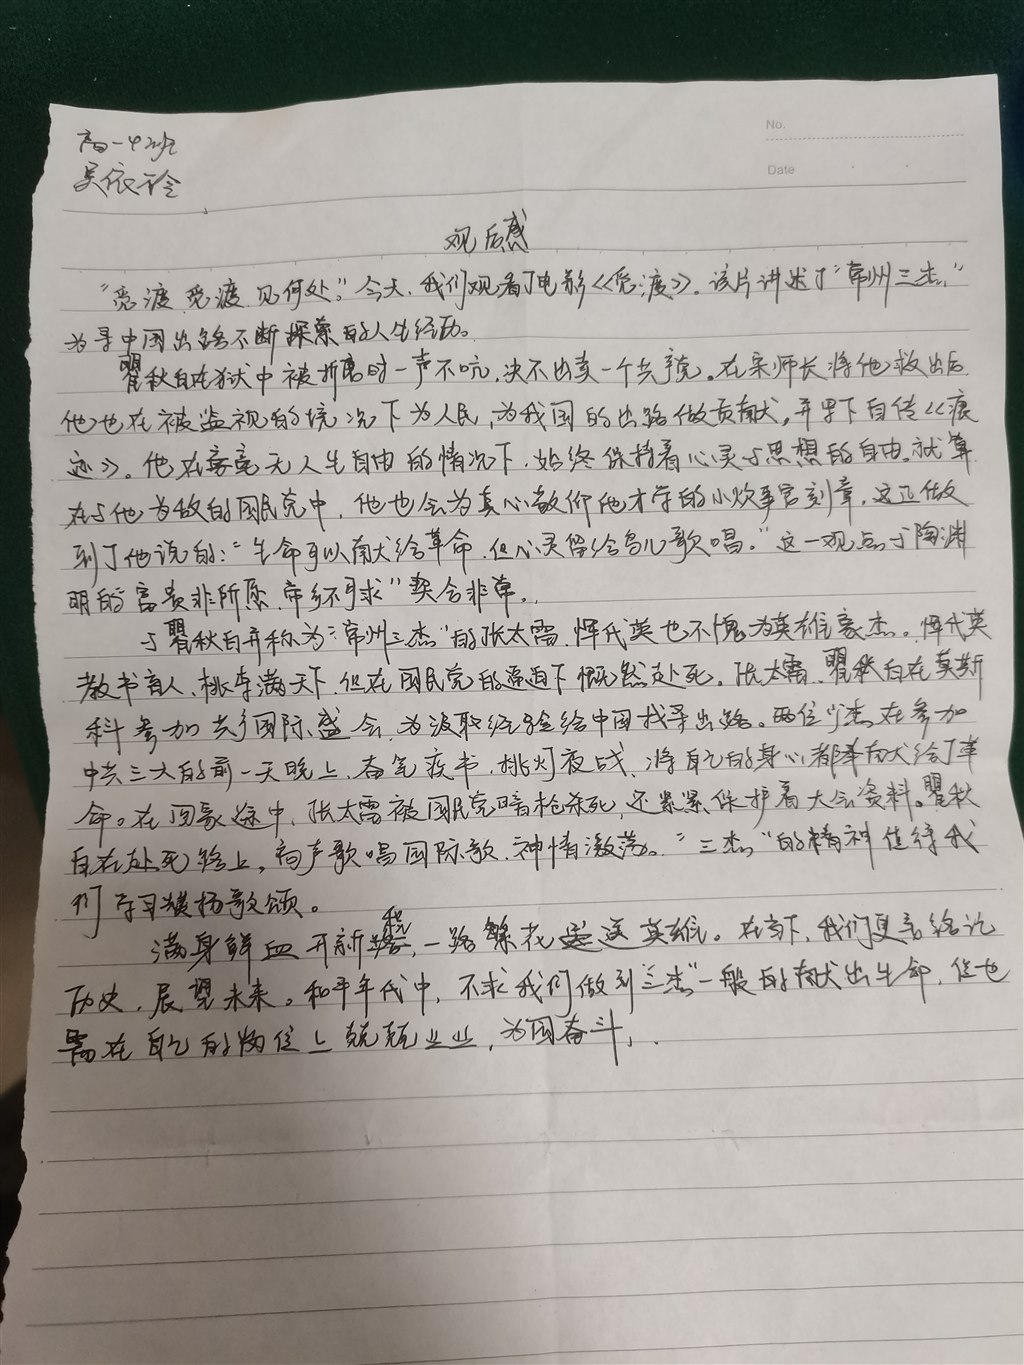 高一42班
吴依令
No.
Date
观后感
“觅渡,觅渡,见何处?”今天,我们观看了电影《觅渡》。该片讲述了“常州三杰”
为寻中国出路不断探索的人生经历。
瞿秋白在狱中被折磨时一声不吭,决不出卖一个共产党。在宋师长将他救出后,
他也在被监视的境况下为人民,为我国的出路做贡献,并写下自传《痕
迹》。他在毫无人生自由的情况下,始终保持着心灵与思想的自由。就算
在与他为敌的国民党中,他也会为真心敬仰他才学的小炊事官刻章,这正做
到了他说的:“生命可以献给革命,但心灵留给鸟儿歌唱。”这一观点与陶渊
明的“富贵非所愿,帝乡不可求”契合非常。
与瞿秋白并称为“常州三杰”的张太雷、恽代英也不愧为英雄豪杰。恽代英
教书育人,桃李满天下,但在国民党的逼迫下慨然赴死。张太雷、瞿秋白在莫斯
科参加共产国际盛会,为汲取经验给中国找寻出路。两位少杰在参加
中共三大的前一天晚上,奋笔疾书,挑灯夜战,将自己的身心都奉献给了革
命。在回家途中,张太雷被国民党暗枪杀死,还紧紧保护着大会资料。瞿秋
白在赴死路上,高声歌唱国际歌,神情激荡。“三杰”的精神值得我
们学习赞扬歌颂。
满身鲜血开新程,一路繁花送英雄。在当下,我们更当铭记
历史,展望未来。和平年代中,不求我们做到“三杰”一般的献出生命,但也
需在自己的岗位上兢兢业业,为国奋斗。